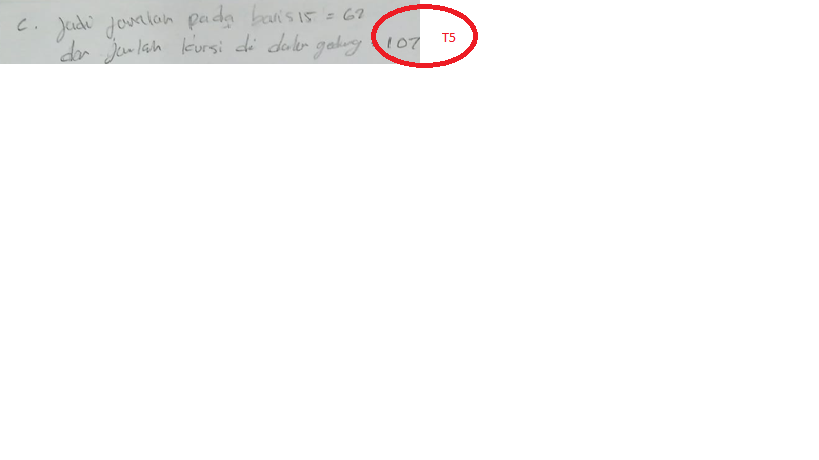 c. Jadi jovalah pada baris 15 = 62
dan jumlah kursi di dalam gedung 107 T5